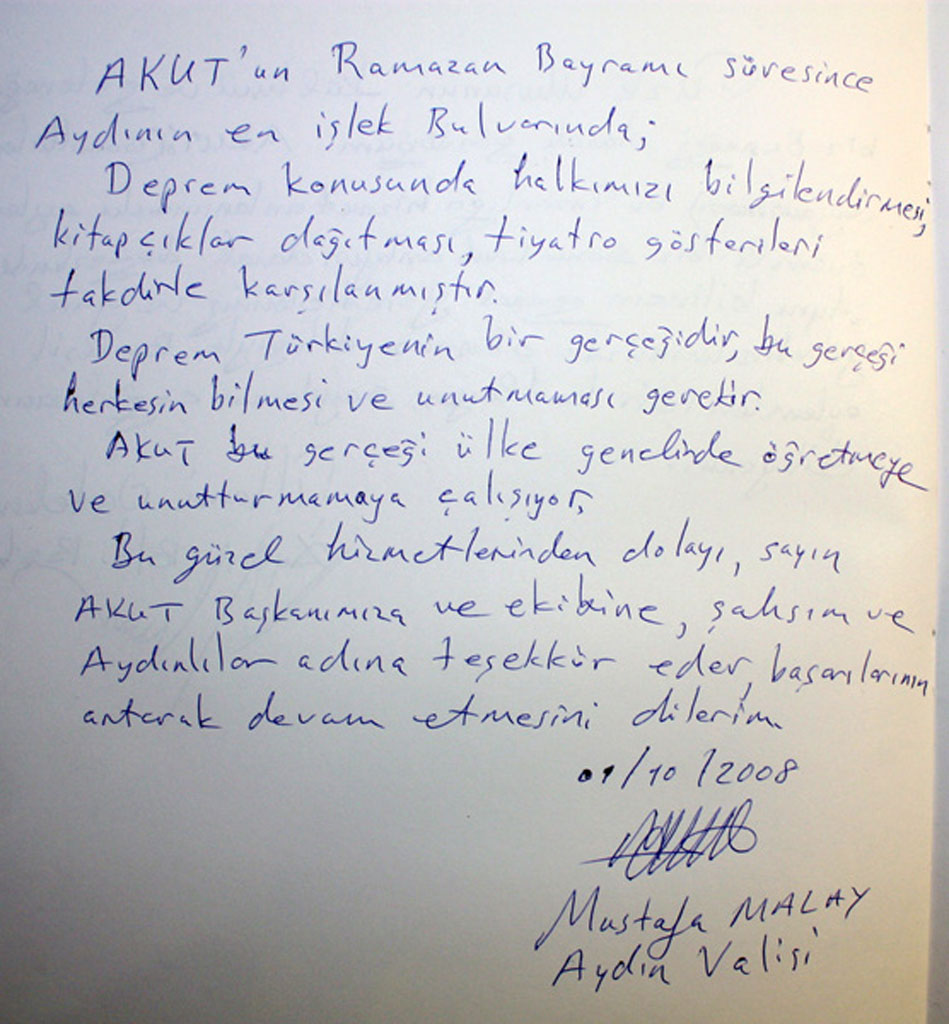 AKUT'un Ramazan Bayramı süresince
Aydının en işlek Bulvarında;
Deprem konusunda halkımızı bilgilendirmesi,
kitapçıklar dağıtması, tiyatro gösterileri
takdirle karşılanmıştır.
Deprem Türkiyenin bir gerçeğidir, bu gerçeği
herkesin bilmesi ve unutmaması gerekir.
AKUT bu gerçeği ülke genelinde öğretmeye
ve unutturmamaya çalışıyor,
Bu güzel hizmetlerinden dolayı, sayın
AKUT Başkanımıza ve ekibine, şahsım ve
Aydınlılar adına teşekkür eder, başarılarının
artarak devam etmesini dilerim.
01/10/2008
Mustafa MALAY
Aydın Valisi